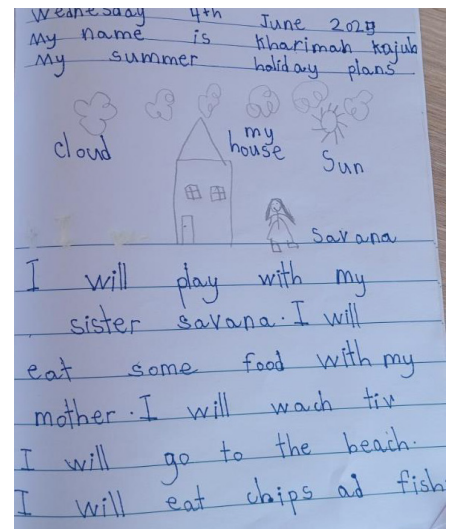 Wednesday 4th June 2025
My name is Kharimah Kajub
My summer holiday plans
cloud
my
house
Sun
Savana
I will play with my
sister savana. I will
eat some food with my
mother. I will wach tiv
I will go to the beach.
I will eat chips ad fish